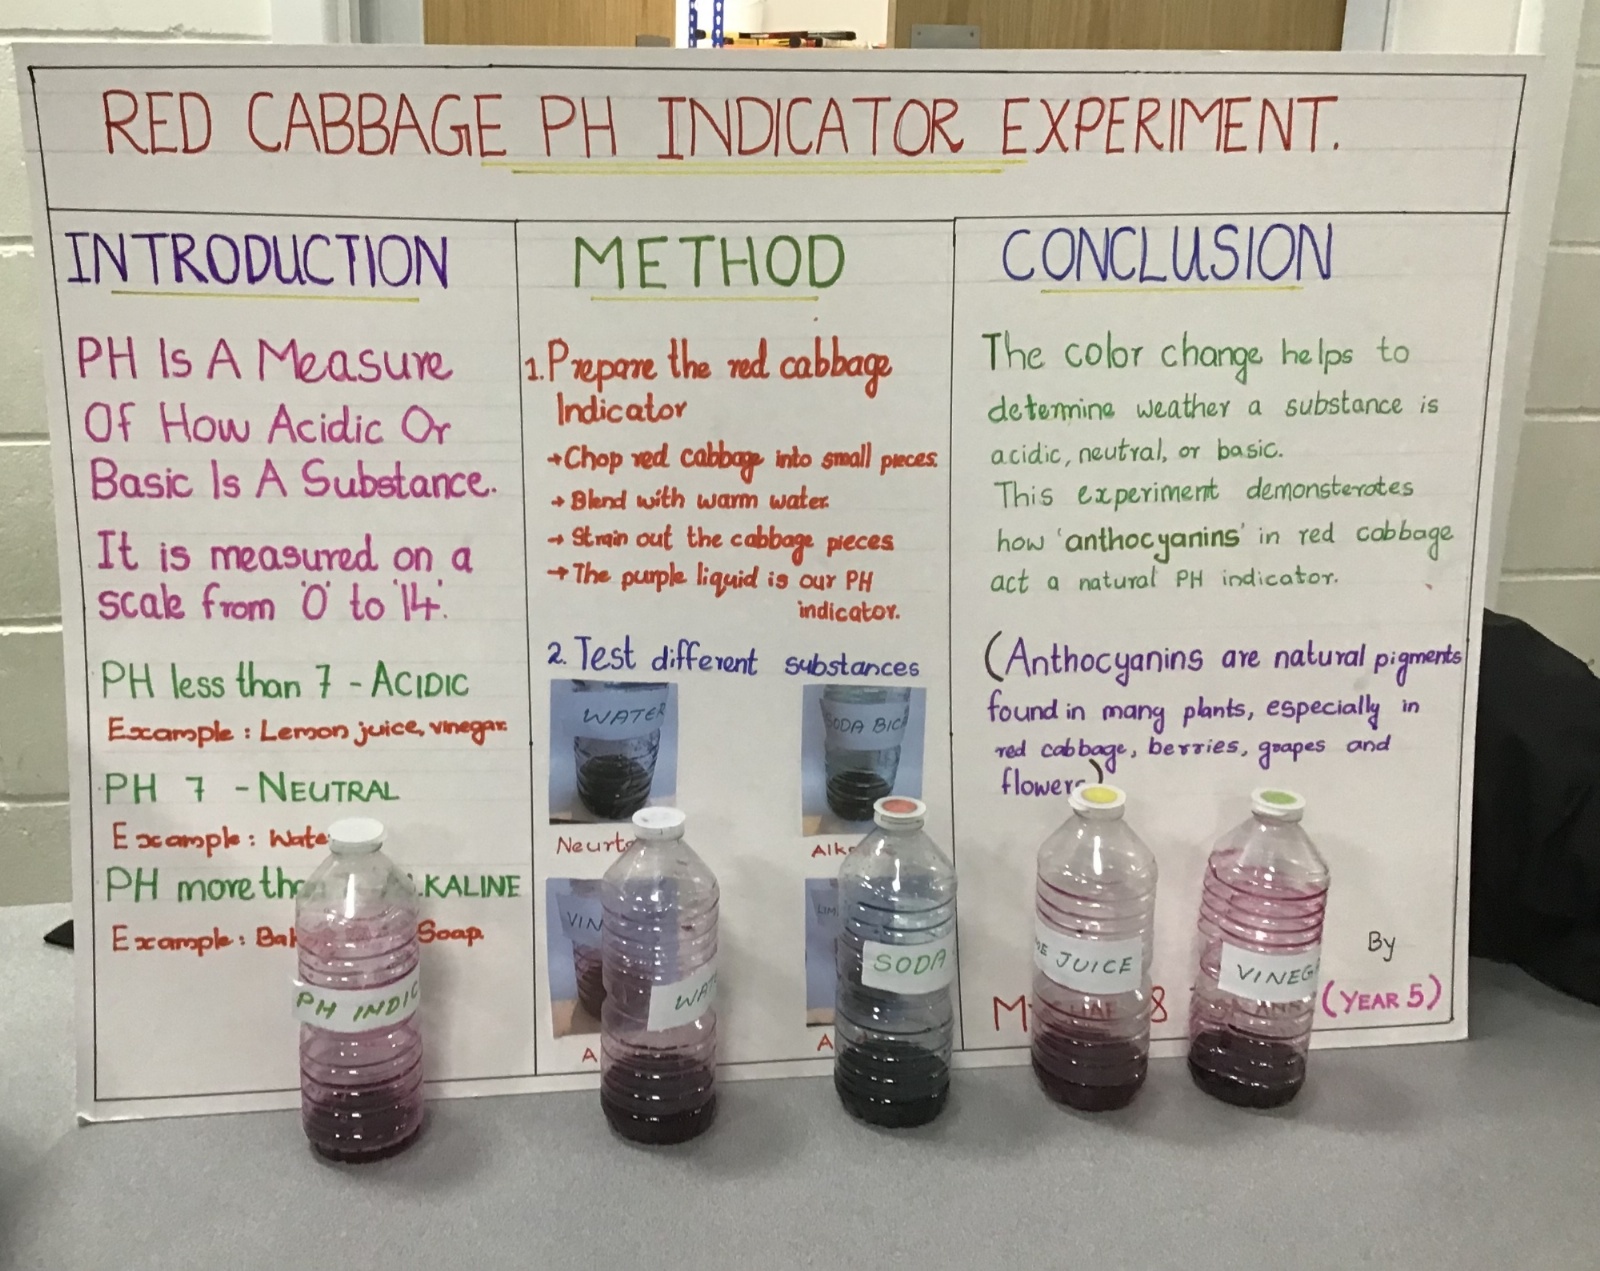 RED CABBAGE PH INDICATOR EXPERIMENT.
INTRODUCTION
PH Is A Measure
Of How Acidic Or
Basic Is A Substance.
It is measured on a
scale from '0' to '14'.
PH less than 7 - ACIDIC
Example : Lemon juice, vinegar.
PH 7 - NEUTRAL
Example : Wate
PH more tha KALINE
Example : Bak Soap
PH INDIC
METHOD
1. Prepare the red cabbage
Indicator
→ Chop red cabbage into small pieces.
→ Blend with warm water.
→ Strain out the cabbage pieces
→ The purple liquid is our PH
indicator.
2. Test different substances
WATER
SODA BIC
Neurt
Alk
VIN
LIM
WAT
SODA
A
A
CONCLUSION
The color change helps to
determine weather a substance is
acidic, neutral, or basic.
This experiment demonsterates
how 'anthocyanins' in red cabbage
act a natural PH indicator.
(Anthocyanins are natural pigments
found in many plants, especially in
red cabbage, berries, grapes and
flowers)
JUICE
VINEG
By
M & (YEAR 5)